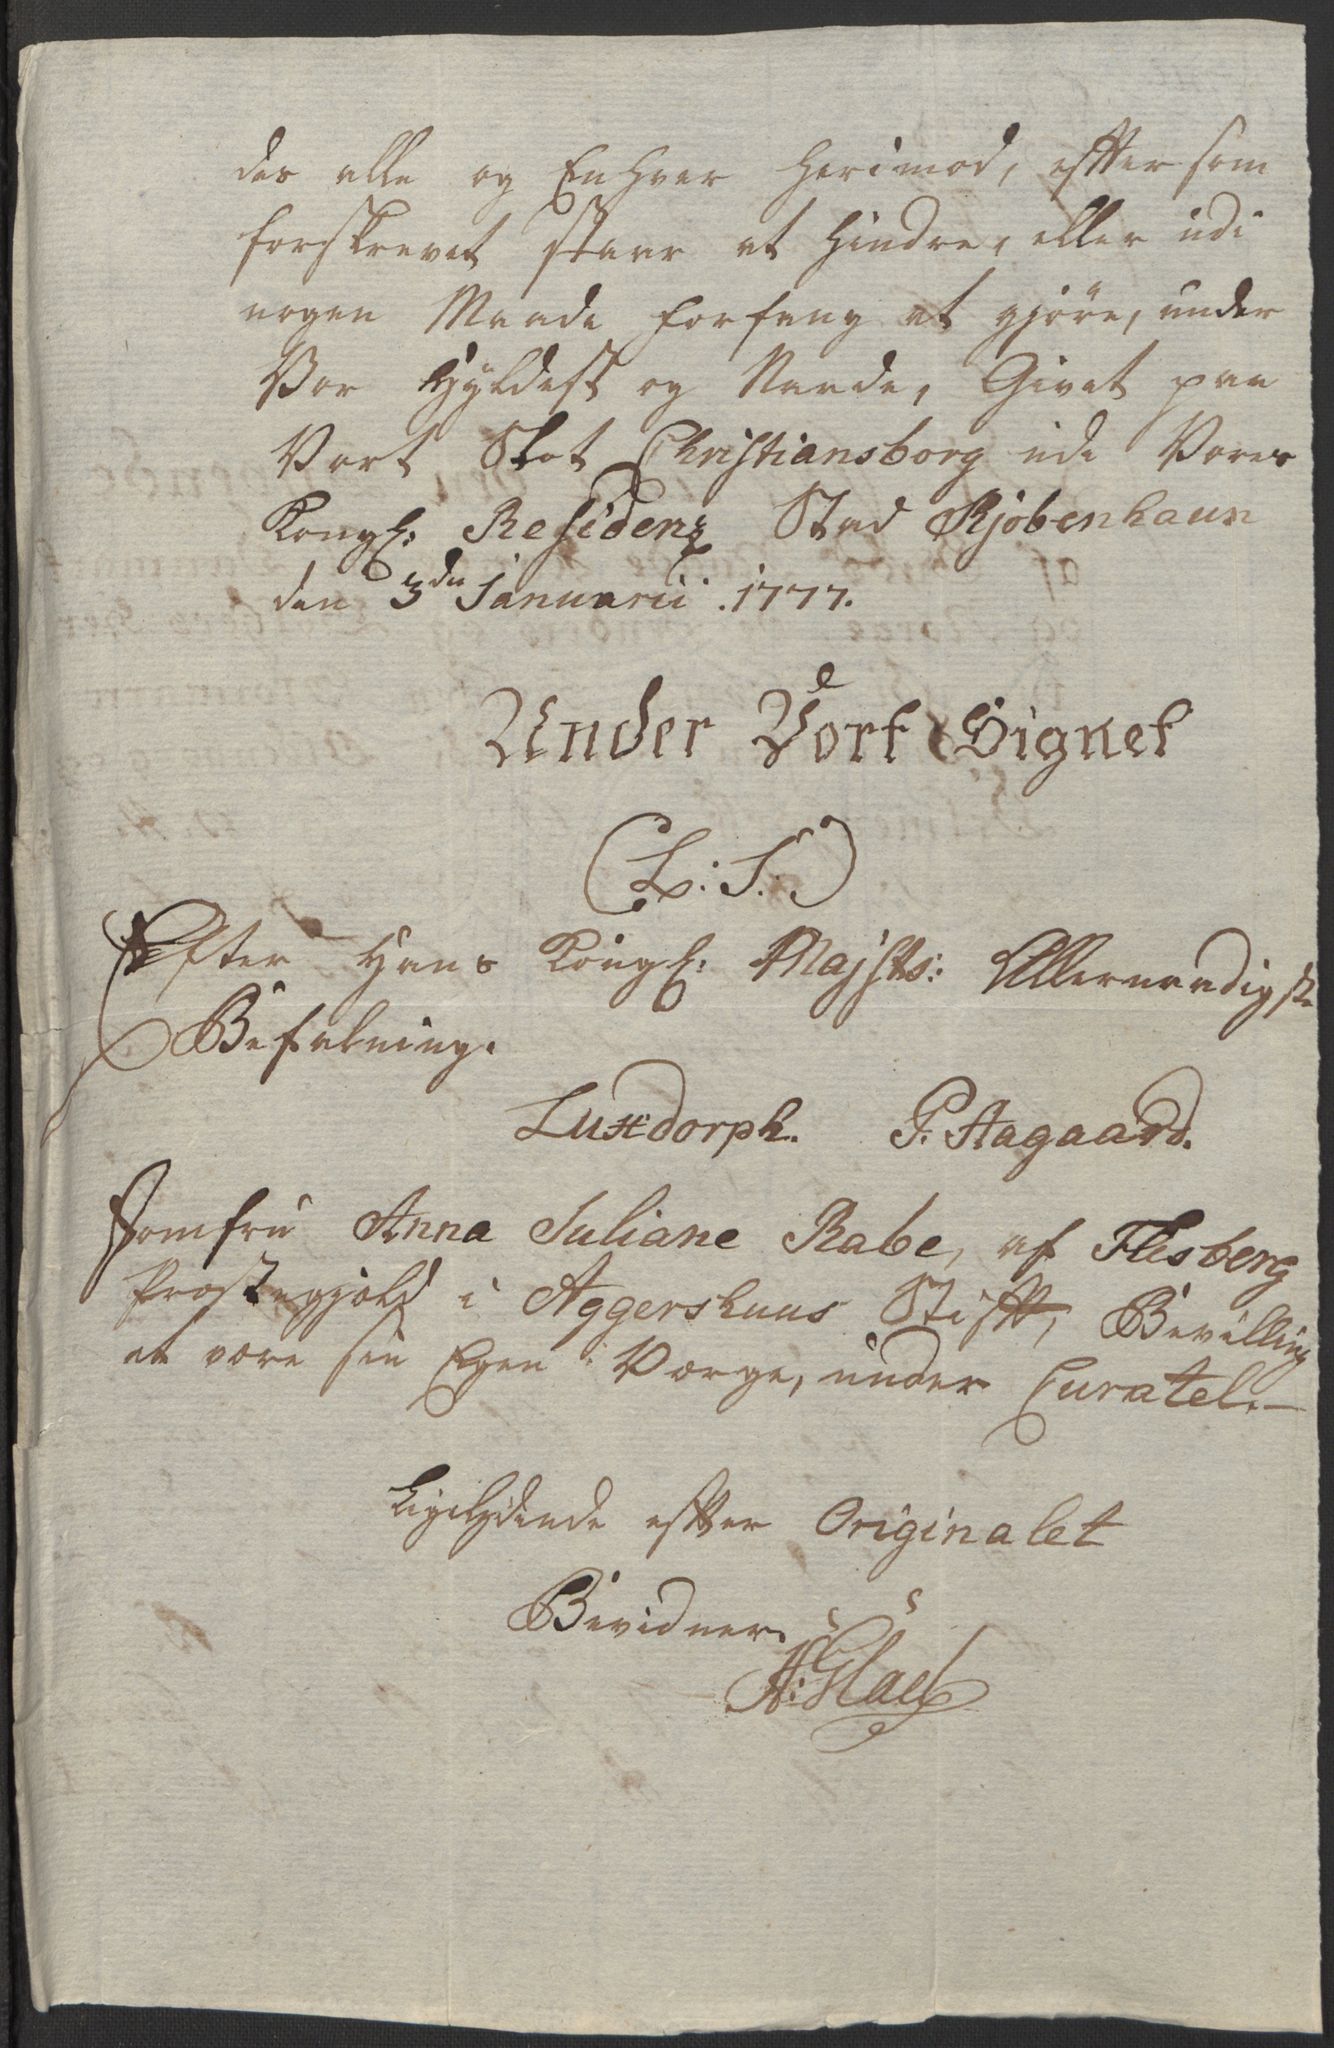 des alle og Enhver herimod, efter som
forskrevet staar at hindre, eller udi
nogen Maade forfang at gjøre, under
Vor Hyldest og Naade, Givet paa
Vort Slot Christiansborg udi Vores
Kongl: Residenz Stad Kjøbenhaun
den 3die Januarii 1777.
Under Vort Signet
(L. S.)
Efter Hans Kongl: Majsts: Allernaadigste
Befalning.
Luxdorph. P. Aagaard.
Jomfru Anna Juliane Rabe, af Flesberg
Præstegjæld i Aggershuus Stift, Bevilling
at være sin Egen Værge, under Curatel.
Ligelydende efter Originalet
Bevidner.